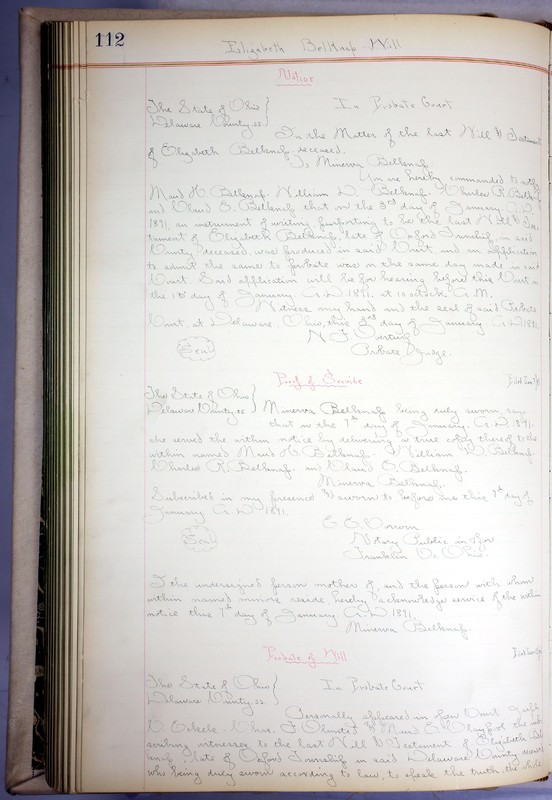 112
Elizabeth Belknap Will
Notice
The State of Ohio } In Probate Court
Delaware County ss }
In the Matter of the last Will & Testament
of Elizabeth Belknap deceased.
To Minerva Belknap.
You are hereby commanded to notify
Maud H. Belknap. William D. Belknap. Charles R. Belknap
and Claud E. Belknap that on the 3rd day of January A.D.
1891, an instrument of writing purporting to be the last Will & Tes-
tament of Elizabeth Belknap, late of Oxford Township, in said
County deceased, was produced in said Court, and an application
to admit the same to probate was on the same day made in said
Court. Said application will be for hearing before this Court on
the day of January A.D. 1891, at 10 oclock A.M.
Witness my hand and the seal of said Probate
Court, at Delaware, Ohio, this 3rd day of January A.D. 1891
Seal
Probate Judge.
Proof of Service
The State of Ohio }
Delaware County ss } Minerva Belknap being duly sworn, says
that on the 7th day of January A.D. 1891.
she served the within notice by delivering a true copy thereof to the
within named Maud H. Belknap. William D. Belknap.
Charles R. Belknap. and Claud E. Belknap.
Minerva Belknap.
Subscribed in my presence & sworn to before me this 7th day of
January A.D. 1891.
Seal
Notary Public in & for
Franklin Co, Ohio.
I the undersigned person mother of, and the person with whom
within named minors reside, hereby acknowledge service of the within
notice this 7th day of January A.D. 1891.
Minerva Belknap.
Probate of Will
The State of Ohio } In Probate Court
Delaware County ss. }
Personally appeared in open Court
the sub
scribing witnesses to the last Will & Testament of Elizabeth Bel
knap, late of Oxford Township in said Delaware County
who being duly sworn according to law, to speak the truth, the whole